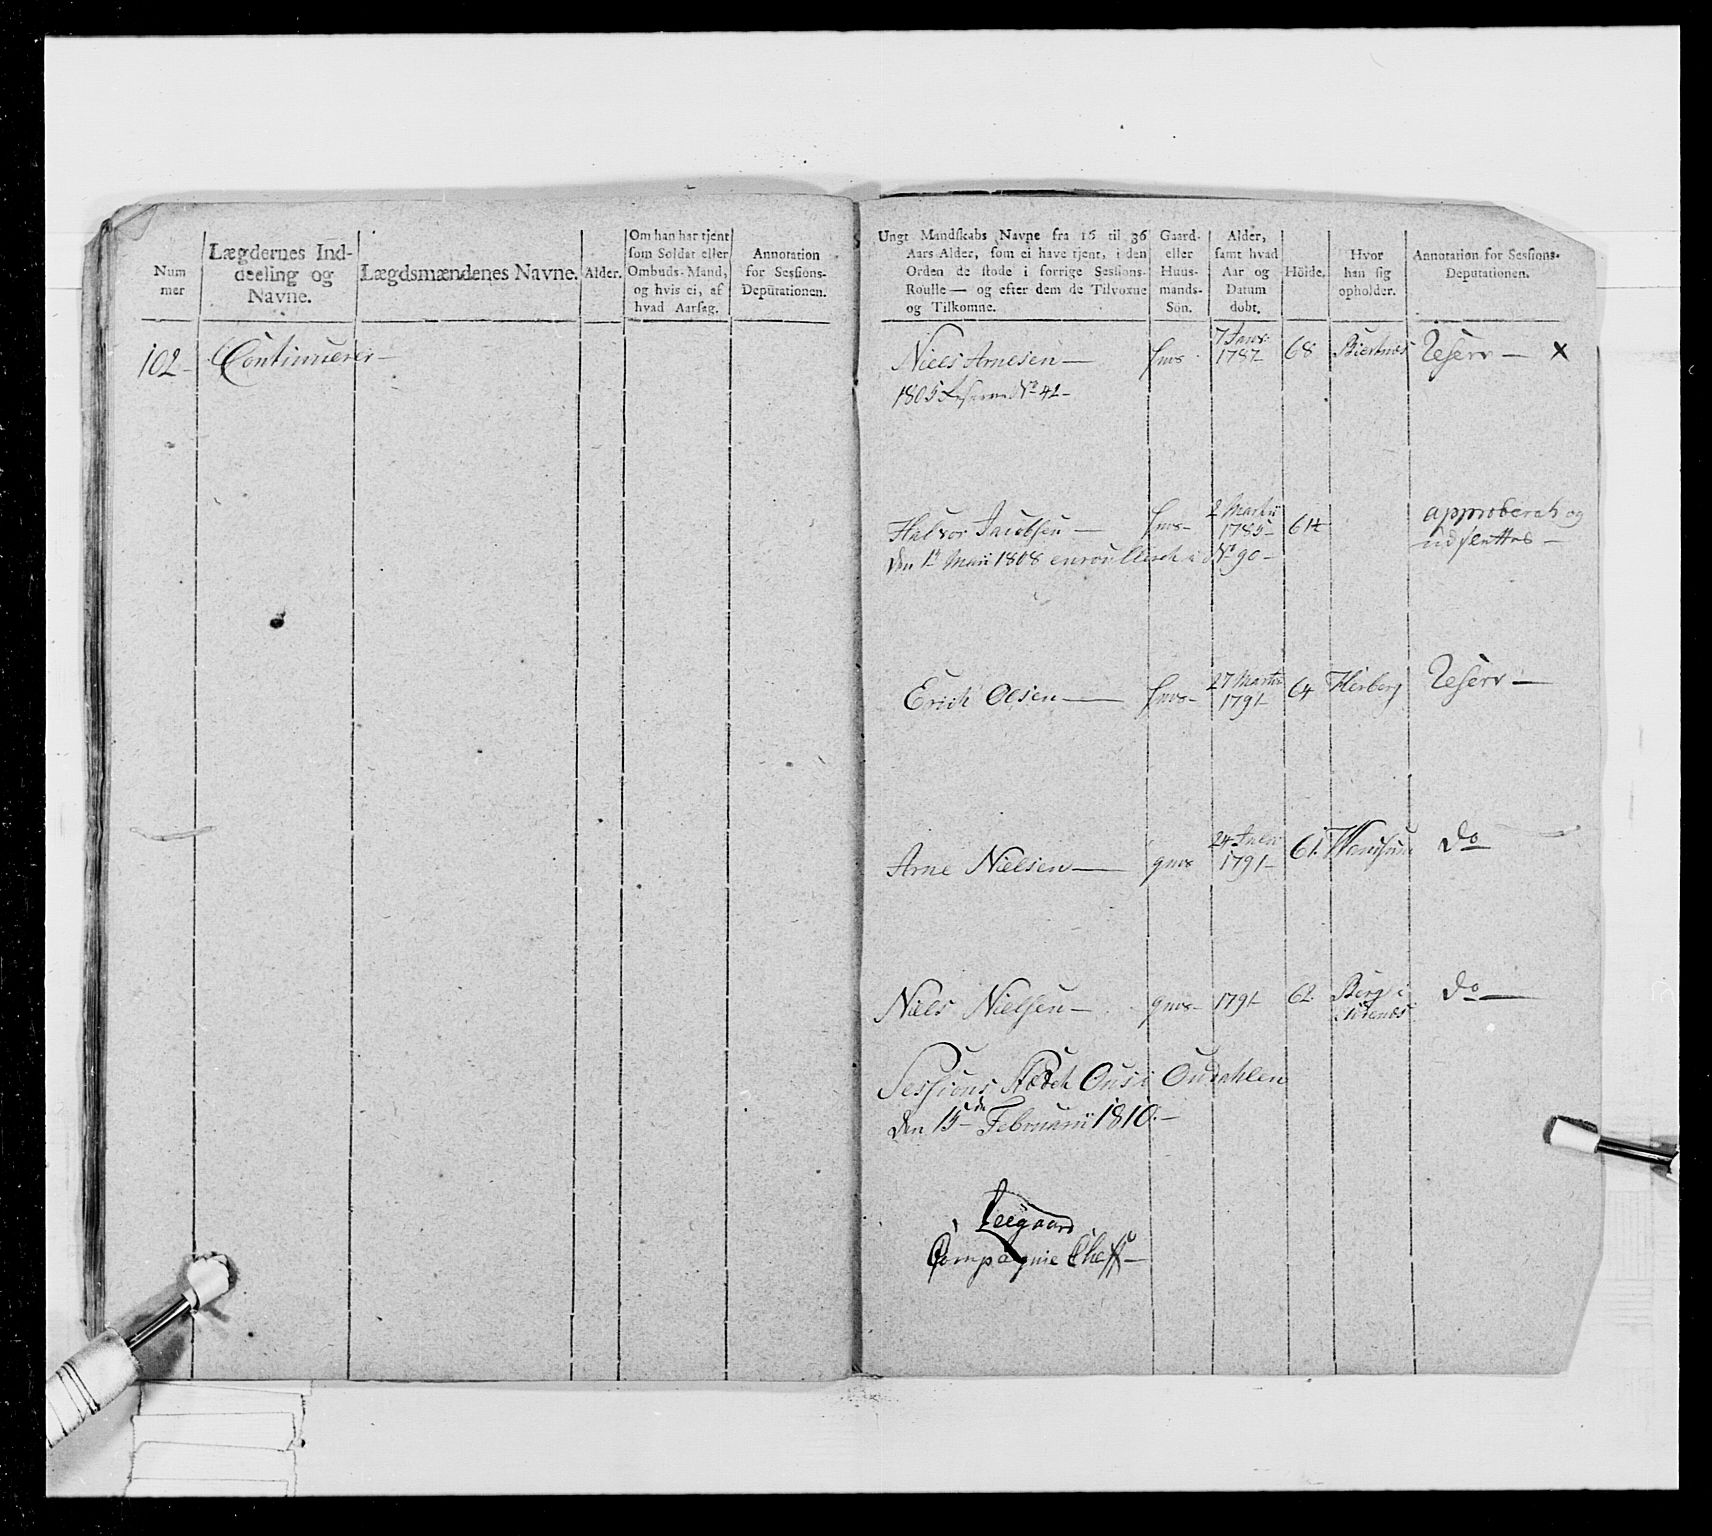 Num
mer
Lægdernes Ind-
deeling og
Navne.
Lægdsmændenes Navne.
Alder.
Om han har tjent
som Soldat eller
Ombuds-Mand,
og hvis ei, af
hvad Aarsag.
Annotation
for Sessions-
Deputationen.
102-
Continuerer-
Ungt Mandskabs Navne fra 16 til 36
Aars Alder, som ei have tjent, i den
Orden de stode i forrige Sessions-
Roulle — og efter dem de Tilvoxne
og Tilkomne.
Gaard-
eller
Huus-
mands-
Sön.
Alder,
samt hvad
Aar og
Datum
dobt.
Hőide.
Hvor
han sig
opholder.
Annotation for Sessions-
Deputationen.
Niels Arnesen — hms 7 Janr 1787 68 Reserv — x
1805 Reserve No 42-
Halvor Jacobsen — hms- 2 Martii 1785- approberet og
udsættes —
den 1t Maii 1808 enroulleret i No 90-
Erich Olsen — hms- 27 Martii 1791- 64 Herberg Reserv —
Arne Nielsen — gms 1791- 61. do
Niels Nielsen — gms- 1791- 62. Berg i do —
Sessions Stædet Ous i Oudahlen
den 15de Februarii 1810.—
Leegaard
Compagnie Cheff —